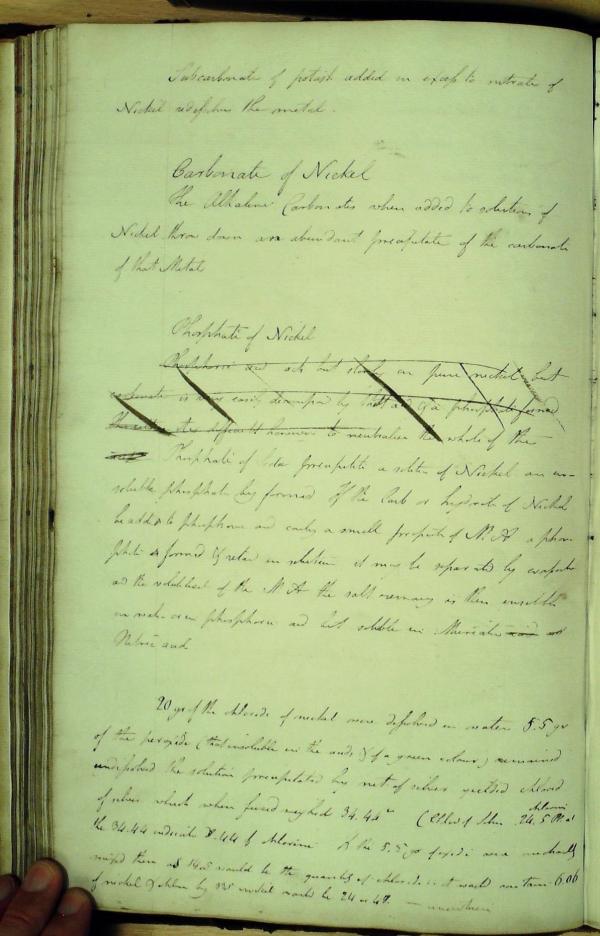 Subcarbonate of potash added in excess to nitrate of
Nickel redissolves the metal.
Carbonate of Nickel
The Alkaline Carbonates when added to solutions of
Nickel throw down an abundant precipitate of the carbonate
of that Metal
Phosphate of Nickel
Phosphoric acid acts but slowly on pure nickel but
carbonate is very easily decomposed by that acid & a phosphate formed
its difficult however to neutralise the whole of the
Phosphate of Soda precipitates a solution of Nickel an in-
soluble phosphate being formed If the Carb or hydrate of Nickel
be added to phosphoric acid containing a small proportion of N. A a phos
phate is formed & retained in solution it may be separated by evaporation
and the volatilization of the N. A the salt remaining is then insoluble
in water or in phosphoric acid but soluble in Muriatic acid and
Nitric acid
20 grs of the chloride of nickel were dissolved in water 5.5 grs
of the peroxide (that insoluble in the acids & of a green colour) remained
undissolved the solution precipitated by nit of silver yielded chloride
of silver which when fused weighed 34.44
chlorine
(Chlorid of Silver 24.5
the 34.44 indicate 8.444 of chlorine If the 5.5 grs of oxide were mechanically
mixed then 14.5 would be the quantity of chloride it would contain 6.06
of nickel & chlorine by nickel would be 24